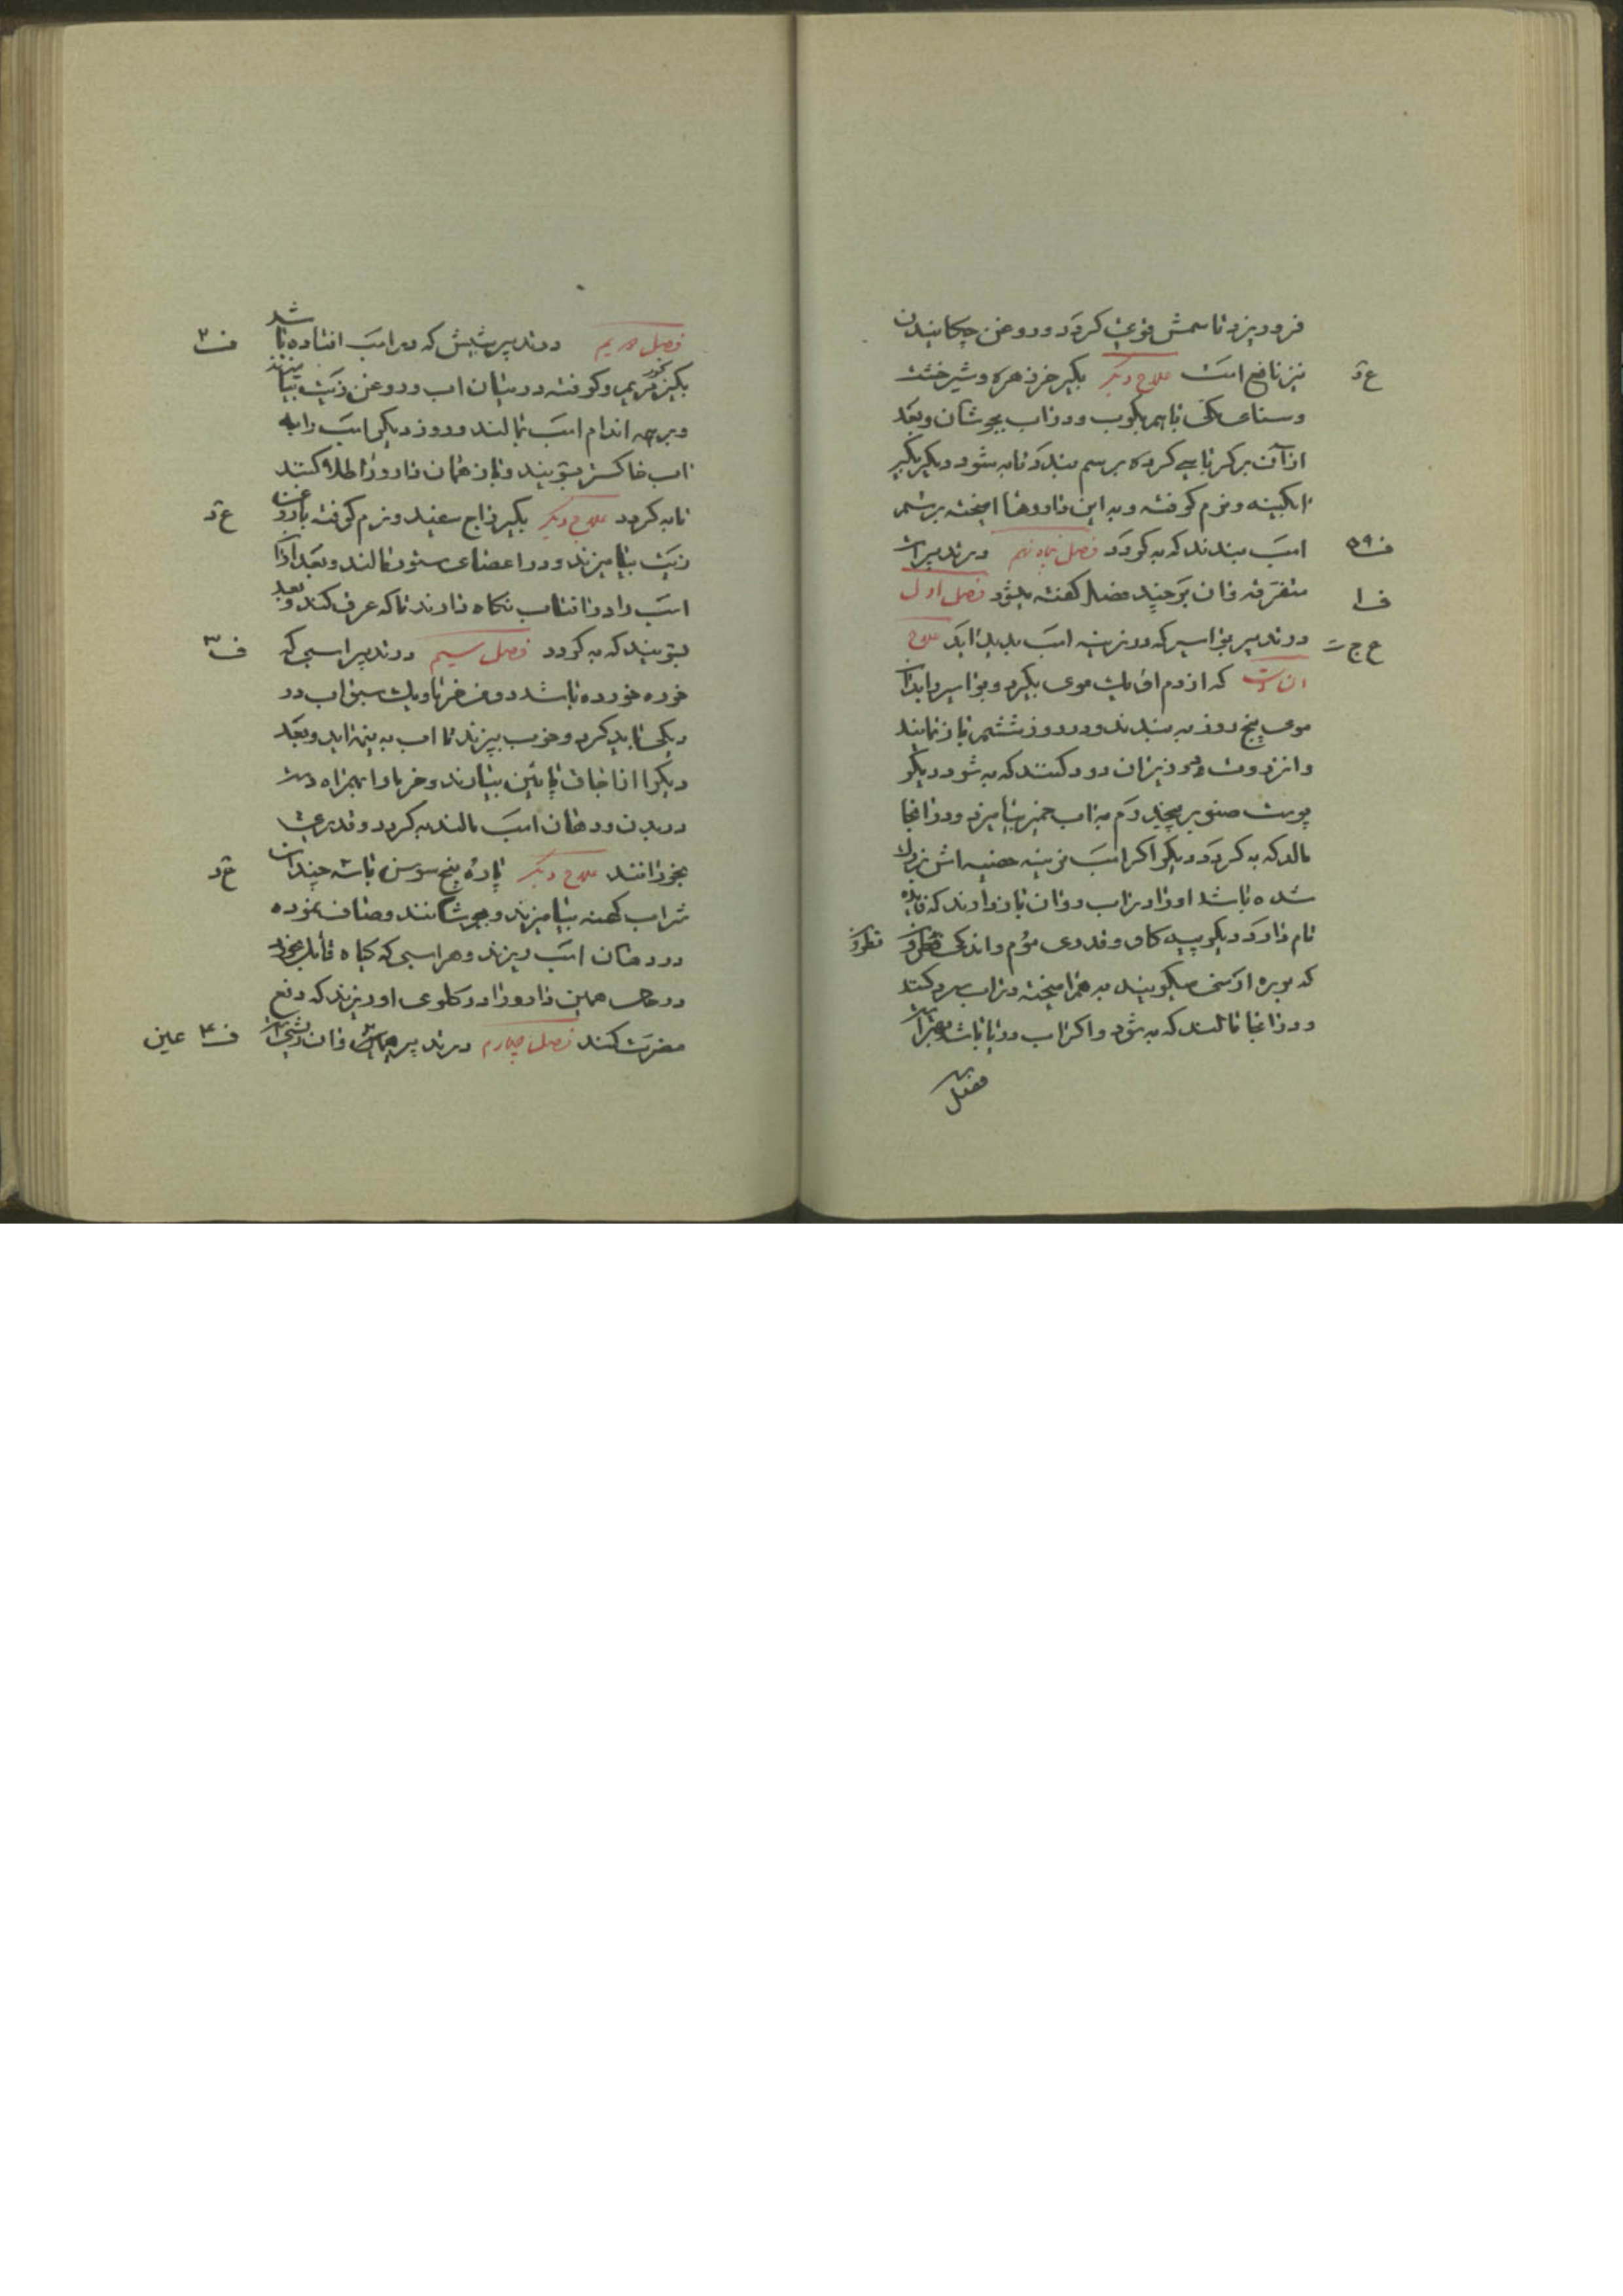 فرو ریزد تا سمش قوی کردد و روغن چکانیدن
نیز نافع است علاج دیکر بکیر خرزهره و شیرخشت
و سنای مکی باهم بکوب و در اب بجوشان و بعد
از آن بر کرباسی کرده بر سم بندد تا به شود دیکر بکیر
ابکینه و نرم کوفته و به این داروها امیخته بر سم
اسب بندند که به کردد فصل پنجاه نهم در تدبیرات
ف ۵۹
متفرقه و ان بر چند فصل کفته میشود فصل اول
ف ا
در تدبیر بواسیر که در نرینه اسب پدید اید علاج
ان است که از دم او یک موی بکیرد و بواسیر را بدان
موی پنج روز به بندند و در روز ششم باز نمایند
و انزروت و بر ان دود کنند که به شود دیکر
پوست صنوبر بیخ در به اب خمیر بیامیزد و در انجا
مالد که به کردد دیکر اکر اسب نرینه خصیه اش بزرک
شده باشد او را در اب روان باز دارند که فایده
تام دارد دیکر پیه کاو و قدری موم و اندکی نطرون
نطرون
که بوره ارمنی میکویند به هم امیخته در اب سرد کنند
و در انجا مالند که به شود و اکر اب دریا باشد بهتر است
فصل
فصل دویم در تدبیر شپش که در اسب افتاده باشد
ف ۲
بکیر مریم و کوفته در میان اب و روغن زیت بیامیزند
و بر همه اندام اسب بمالند و روز دیکر اسب را به
اب خاکستر بشویند و باز همان دارو را طلا کنند
تا به کردد علاج دیکر بکیر زاج سفید و نرم کوفته با روغن
ع د
زیت بیامیزند و در اعضای ستور مالند و بعد از ان
اسب را در افتاب نکاه دارند تا که عرق کند و بعد
بشویند که به کردد فصل سیم در تدبیر اسبی که
ف ۳
خوره خورده باشد دو من خرما و یک سبو اب در
دیکی باید کرد و خوب بپزند تا اب به نیمه اید و بعد
دیک را از اجاق پائین بیارند و خرما را بهمراه دست
در بدن و دهان اسب مالند به کردد و قدری
بخورانند علاج دیکر پاره بیخ سوسن با سه چندان
ع د
شراب کهنه بیامیزند و بجوشانند و صاف نموده
در دهان اسب ریزند و هر اسبی که کیاه قاتل بخورد
در حال همین دارو را در کلوی او ریزند که دفع
مضرت کند فصل چهارم در تدبیر
ف ۴ عین